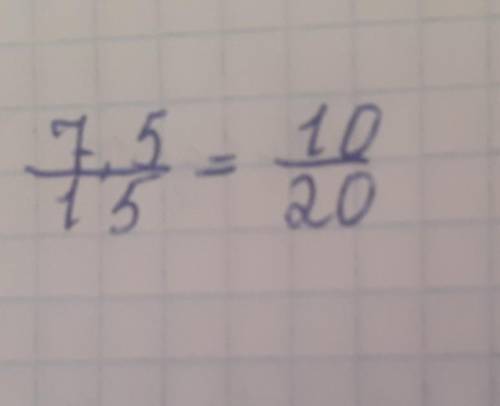 7,5/15 = 10/20